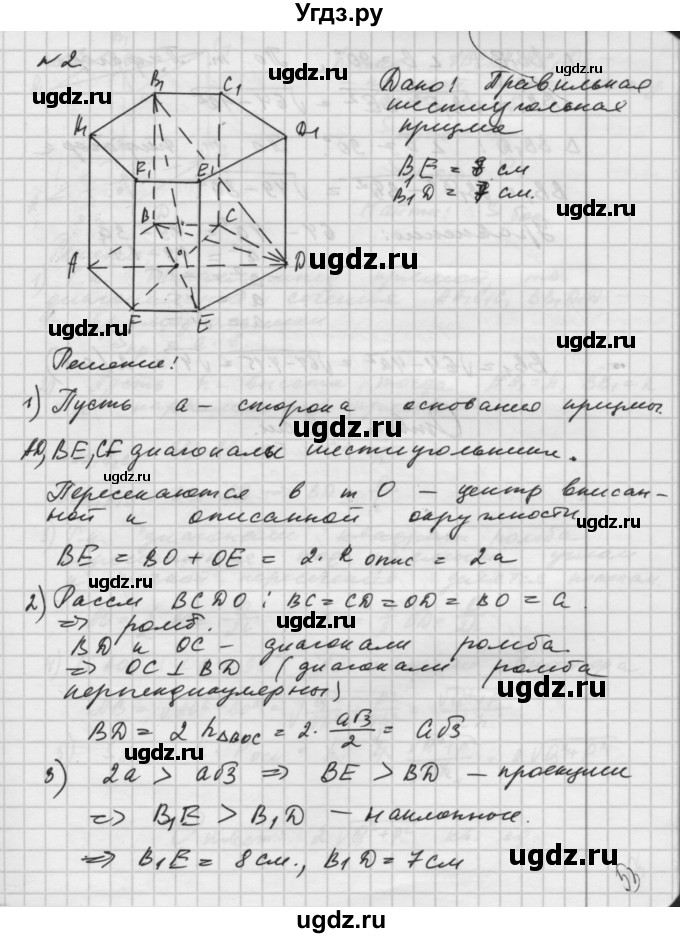 Угдз.ру
№2
B₁ C₁
A₁ D₁
F₁ E₁
B C
A O D
F E
Дано: Правильная
шестиугольная
призма
B₁E = 8 см
B₁D = 7 см.
ugdz.ru
ugdz.ru
ugdz.ru
Решение:
ugdz.ru
1) Пусть a - сторона основания призмы.
ugdz.ru
AD, BE, CF диагоналы шестиугольника.
ugdz.ru
Пересекаются в т O - центр вписан-
ной и описанной окружности
ugdz.ru
BE = BO + OE = 2 · R опис = 2a
ugdz.ru
2) Рассм BCDO: BC = CD = OD = BO = a
⇒ ромб.
BD и OC - диагонали ромба
⇒ OC ⊥ BD (диагонали ромба
перпендикулярны)
ugdz.ru
BD = 2 h△BOC = 2 · a√3/2 = a√3
ugdz.ru
3) 2a > a√3 ⇒ BE > BD - проекции
⇒ B₁E > B₁D - наклонные.
ugdz.ru
⇒ B₁E = 8 см., B₁D = 7 см
ugdz.ru